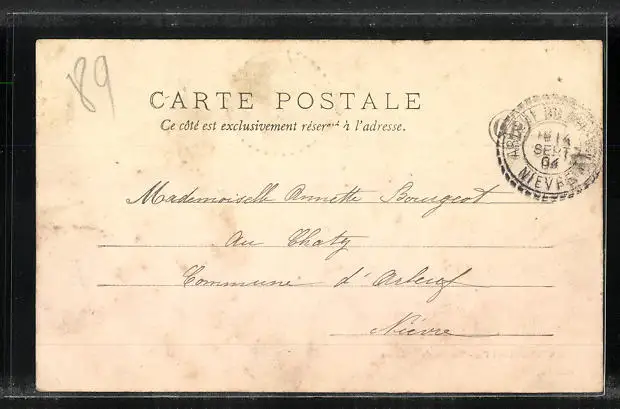 89
CARTE POSTALE
Ce côté est exclusivement réservé à l'adresse.
14
SEPT
04
NIEVRE
Mademoiselle Annette Bourgeot
Au Chaty
Commune d'Arleuf
Nièvre